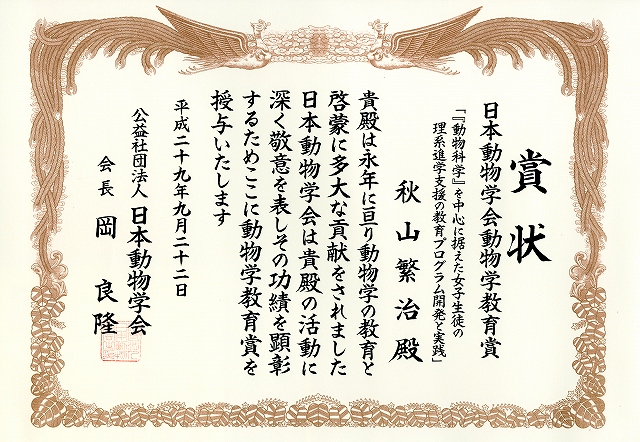 賞状
日本動物学会動物学教育賞
「『動物科学』を中心に据えた女子生徒の
理系進学支援の教育プログラム開発と実践」
秋山繁治殿
貴殿は永年に亘り動物学の教育と
啓蒙に多大な貢献をされました
日本動物学会は貴殿の活動に
深く敬意を表しその功績を顕彰
するためここに動物学教育賞を
授与いたします
平成二十九年九月二十二日
公益社団法人 日本動物学会
会長 岡 良隆